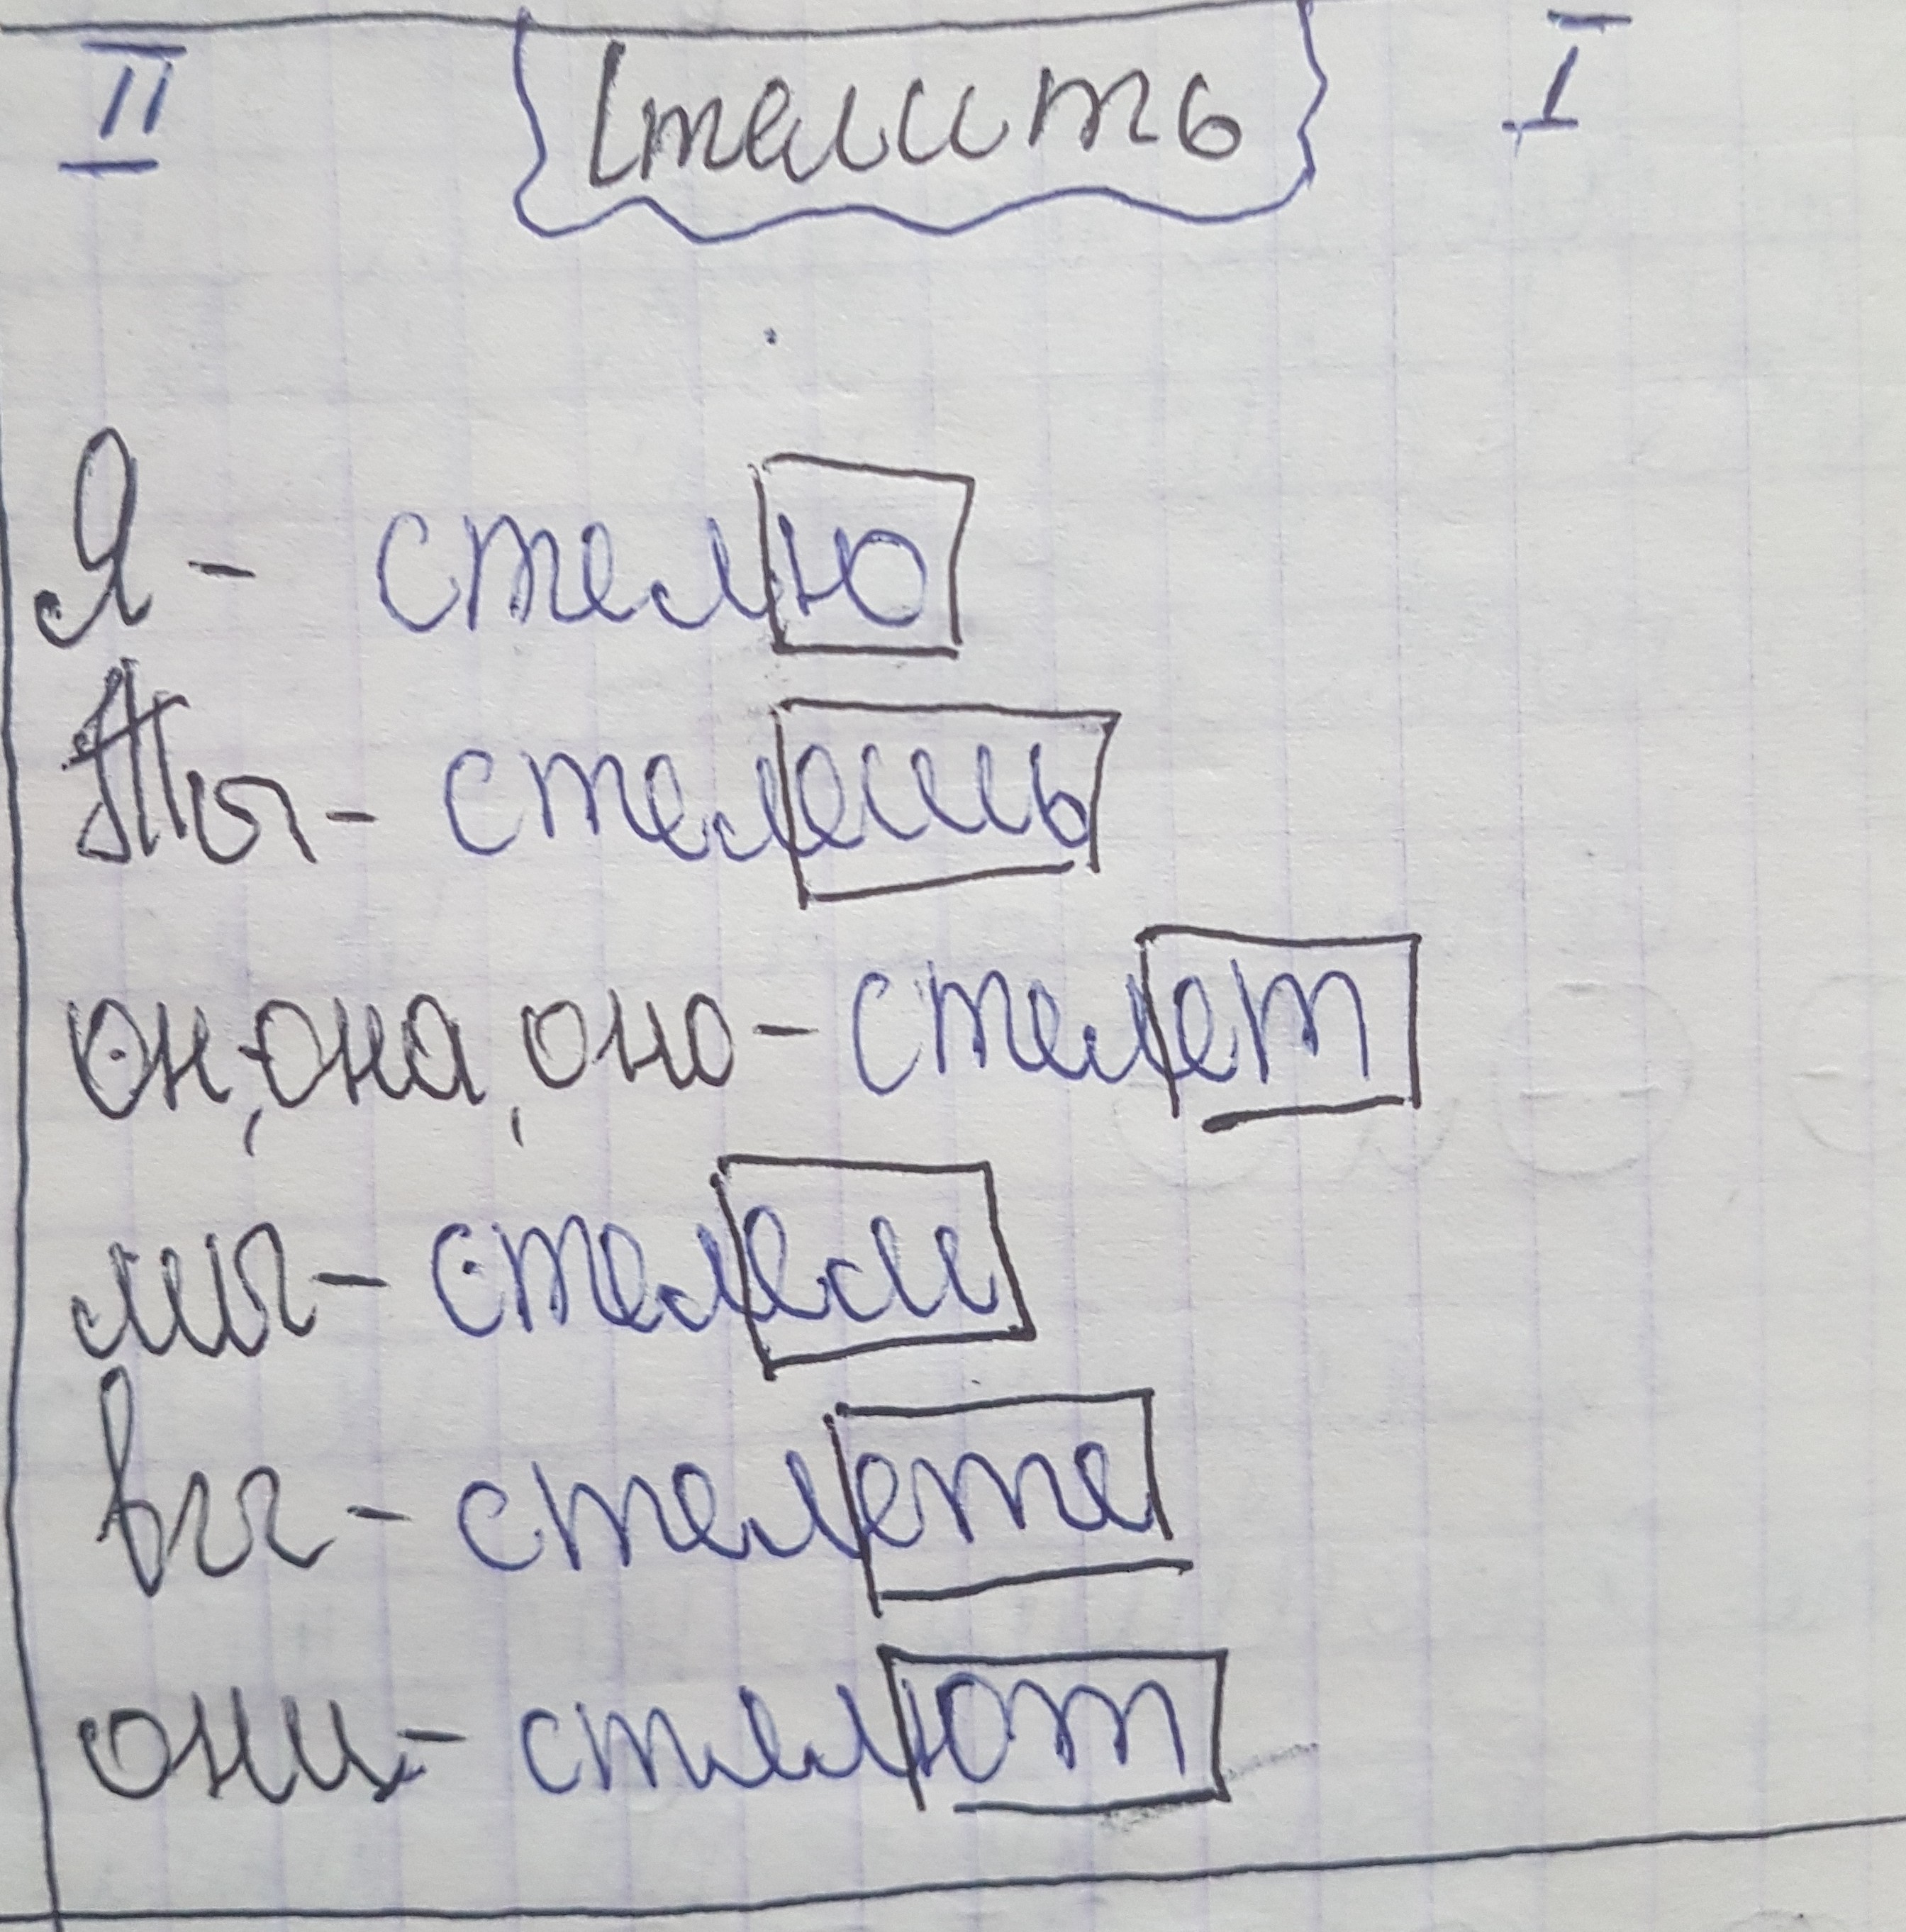 II Стелить I
Я - стелю
Ты - стелешь
он, она, оно - стелет
мы - стелем
вы - стелете
они - стелют